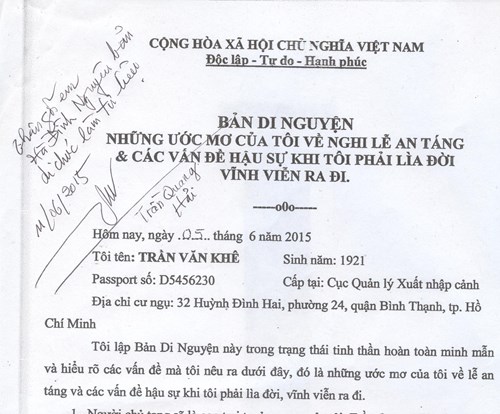 CỘNG HÒA XÃ HỘI CHỦ NGHĨA VIỆT NAM
Độc lập - Tự do - Hạnh phúc
Thân gởi em
Hà Đình Nguyên bản
di chúc làm tư liệu
11/06/2015
Trần Quang
Hải
BẢN DI NGUYỆN
NHỮNG ƯỚC MƠ CỦA TÔI VỀ NGHI LỄ AN TÁNG
& CÁC VẤN ĐỀ HẬU SỰ KHI TÔI PHẢI LÌA ĐỜI
VĨNH VIỄN RA ĐI.
-----o0o-----
Hôm nay, ngày .05.. tháng 6 năm 2015
Tôi tên: TRẦN VĂN KHÊ Sinh năm: 1921
Passport số: D5456230 Cấp tại: Cục Quản lý Xuất nhập cảnh
Địa chỉ cư ngụ: 32 Huỳnh Đình Hai, phường 24, quận Bình Thạnh, tp. Hồ
Chí Minh
Tôi lập Bản Di Nguyện này trong trạng thái tinh thần hoàn toàn minh mẫn
và hiểu rõ các vấn đề mà tôi nêu ra dưới đây, đó là những ước mơ của tôi về lễ
an táng và các vấn đề hậu sự khi tôi phải lìa đời, vĩnh viễn ra đi.
1. Người chủ tang sẽ là con trai